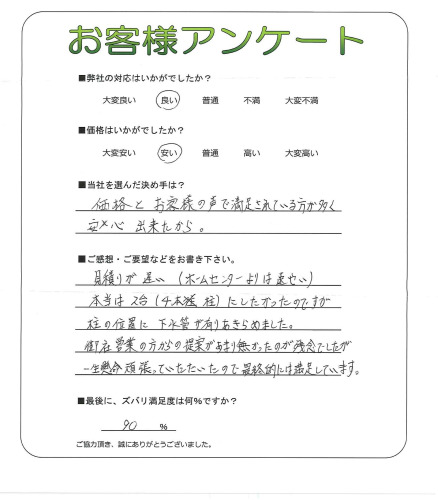 お客様アンケート
■弊社の対応はいかがでしたか？
大変良い 良い 普通 不満 大変不満
■価格はいかがでしたか？
大変安い 安い 普通 高い 大変高い
■当社を選んだ決め手は？
価格と お客様の声で満足されている方が多く
安心 出来たから。
■ご感想・ご要望などをお書き下さい。
見積りが遅い （ホームセンターよりは
本当は 2台（4本 柱）にしたかったのですが
柱の位置に 下水管が有りあきらめました。
営業の方からの提案があまり無かったのが残念でしたが
一生懸命頑張っていただいたので最終的には満足しています。
■最後に、ズバリ満足度は何％ですか？
90 ％
ご協力頂き、誠にありがとうございました。